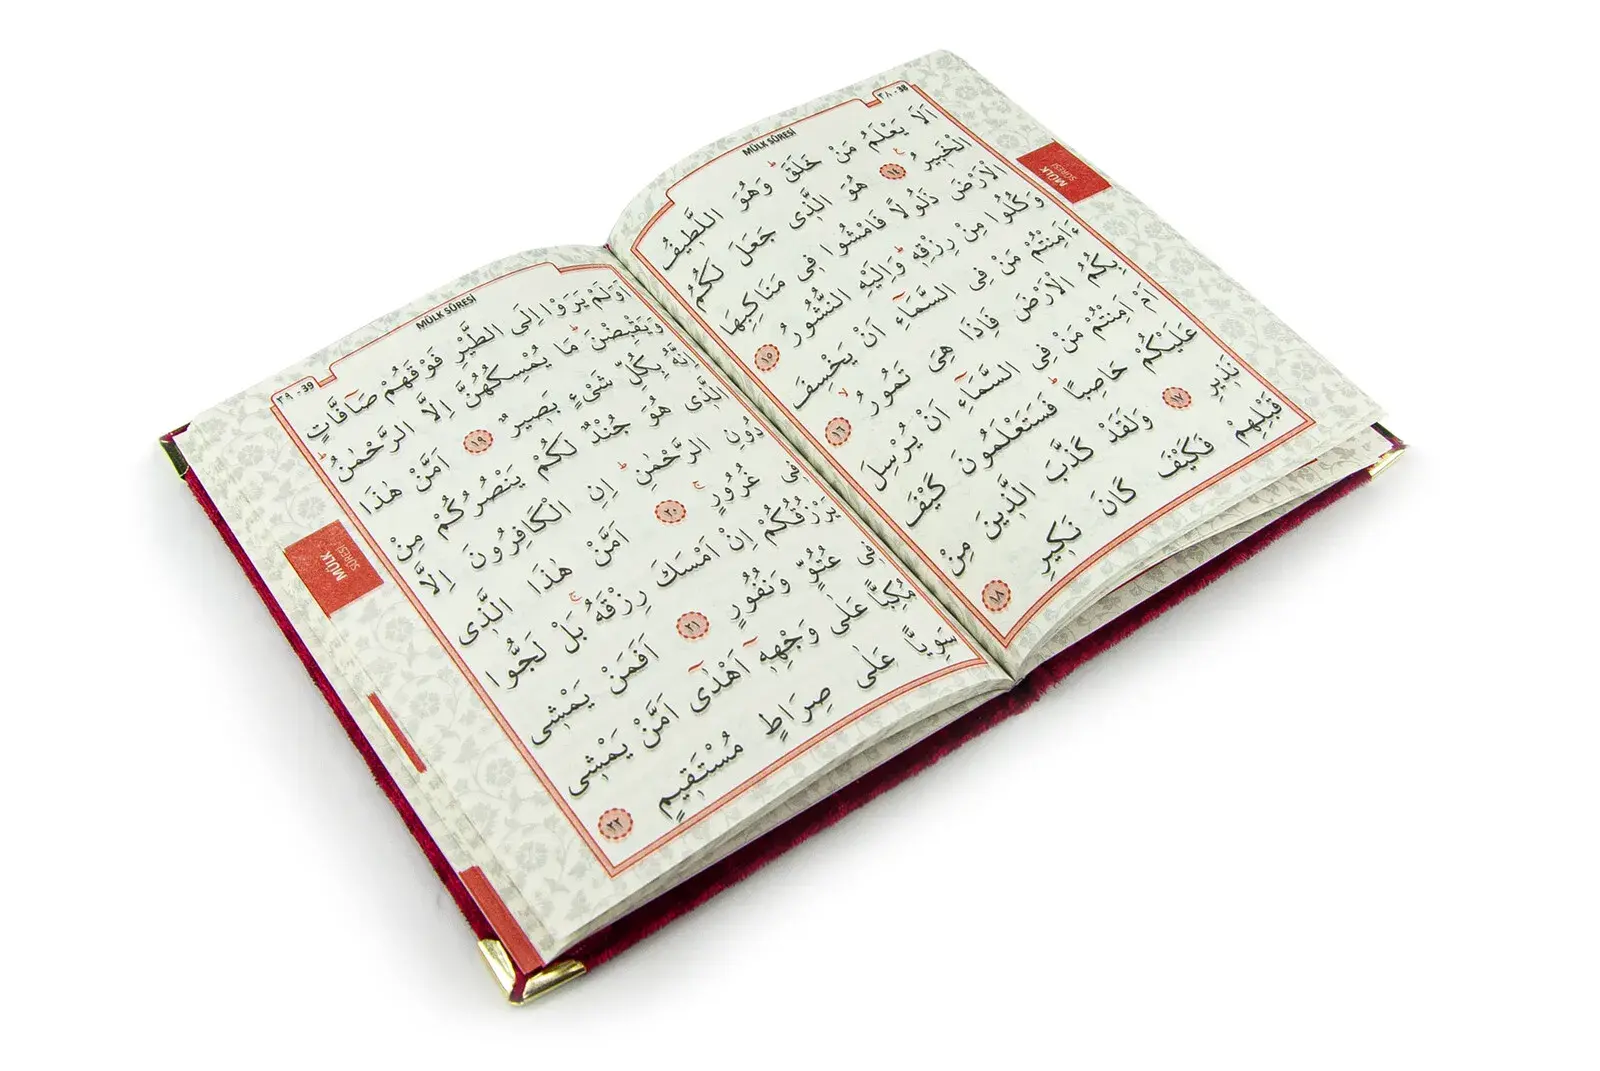 ٣٨ - 38
MÜLK SÛRESİ
MÜLK
SÛRESİ
اَلَا يَعْلَمُ مَنْ خَلَقَ ط وَهُوَ اللَّطِيفُ
الْخَبِيرُ ع ١٤ هُوَ الَّذِى جَعَلَ لَكُمُ
الْاَرْضَ ذَلُولًا فَامْشُوا فِى مَنَاكِبِهَا
وَكُلُوا مِنْ رِزْقِهِ ط وَاِلَيْهِ النُّشُورُ ١٥
ءَاَمِنْتُمْ مَنْ فِى السَّمَٓاءِ اَنْ يَخْسِفَ
بِكُمُ الْاَرْضَ فَاِذَا هِىَ تَمُورُ ١٦
اَمْ اَمِنْتُمْ مَنْ فِى السَّمَٓاءِ اَنْ يُرْسِلَ
عَلَيْكُمْ حَاصِبًا ط فَسَتَعْلَمُونَ كَيْفَ
نَذِيرِ ١٧ وَلَقَدْ كَذَّبَ الَّذِينَ مِنْ
قَبْلِهِمْ فَكَيْفَ كَانَ نَكِيرِ ١٨
MÜLK SÛRESİ
٣٩ - 39
MÜLK
SÛRESİ
اَوَلَمْ يَرَوْا اِلَى الطَّيْرِ فَوْقَهُمْ صَٓافَّاتٍ
وَيَقْبِضْنَ ط مَا يُمْسِكُهُنَّ اِلَّا الرَّحْمٰنُ ط
اِنَّهُ بِكُلِّ شَىْءٍ بَصِيرٌ ١٩ اَمَّنْ هٰذَا
الَّذِى هُوَ جُنْدٌ لَكُمْ يَنْصُرُكُمْ مِنْ
دُونِ الرَّحْمٰنِ ط اِنِ الْكَافِرُونَ اِلَّا
فِى غُرُورٍ ج ٢٠ اَمَّنْ هٰذَا الَّذِى
يَرْزُقُكُمْ اِنْ اَمْسَكَ رِزْقَهُ ج بَلْ لَجُّوا
فِى عُتُوٍّ وَنُفُورٍ ٢١ اَفَمَنْ يَمْشِى
مُكِبًّا عَلٰى وَجْهِهِٓ اَهْدٰٓى اَمَّنْ يَمْشِى
سَوِيًّا عَلٰى صِرَاطٍ مُسْتَقِيمٍ ٢٢